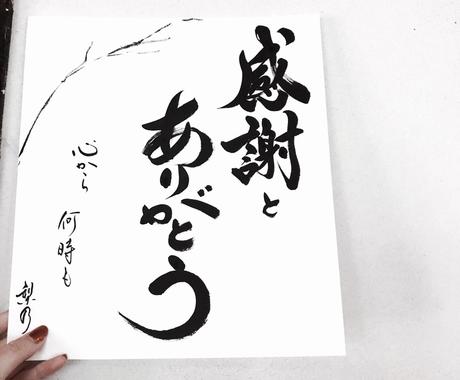 感謝と
ありがとう
心から
何時も
梨乃